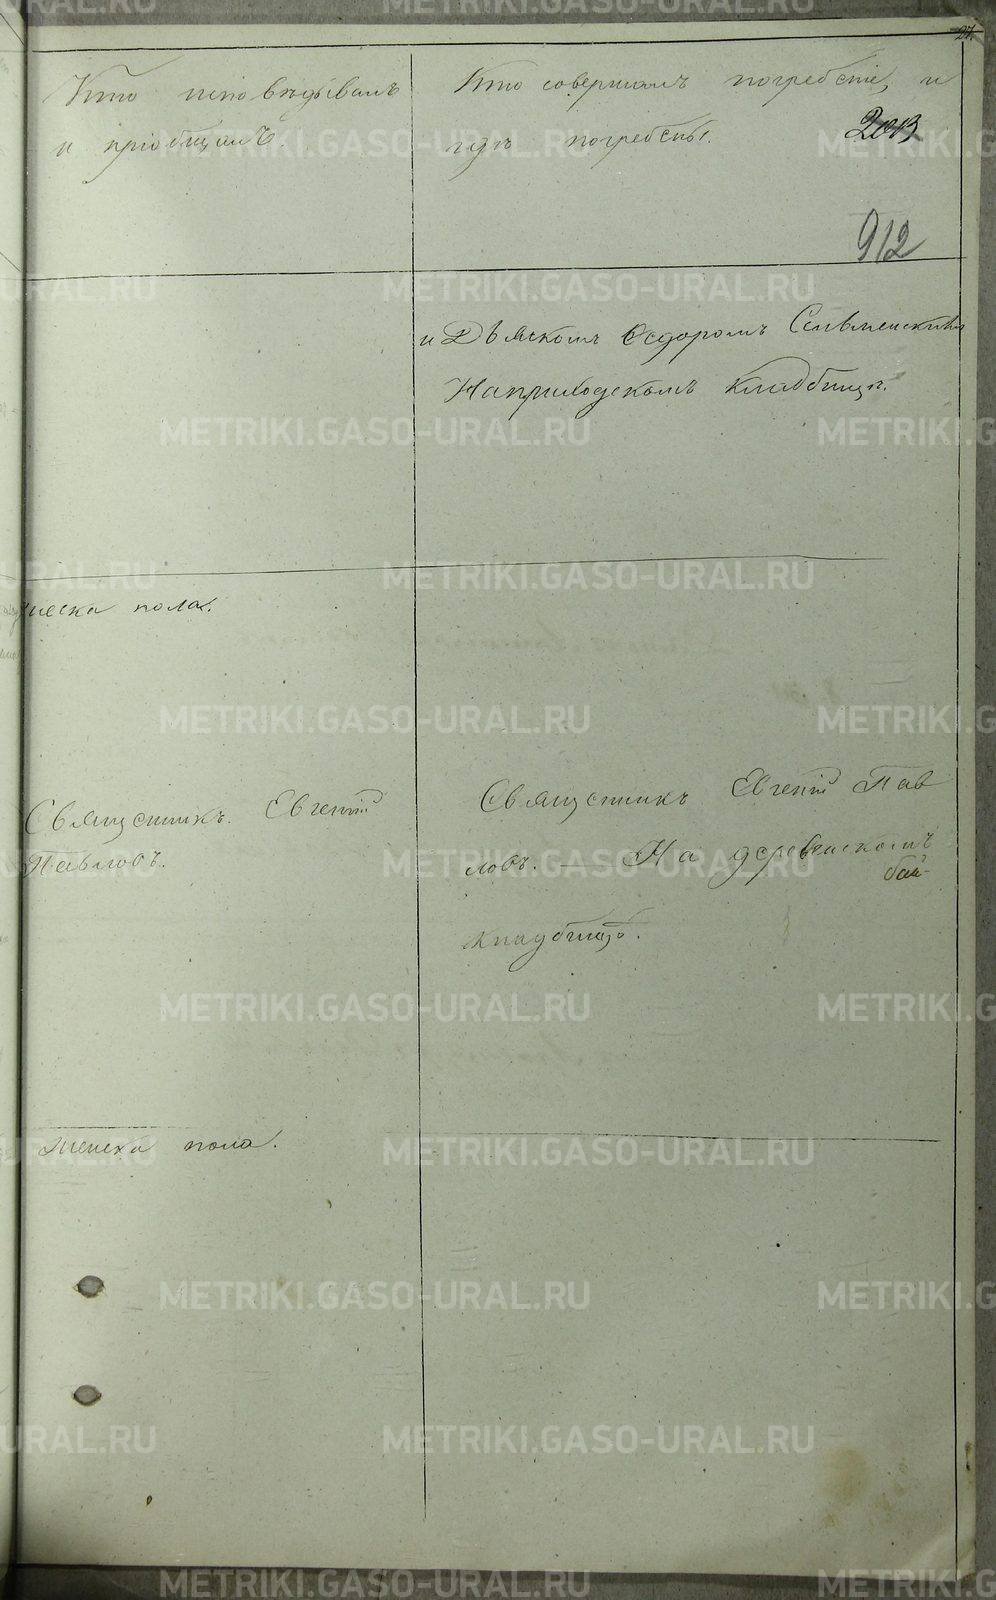 27.
Кто исповѣдывалъ
и пріобщалъ.
Кто совершалъ погребеніе, и
гдѣ погребены.
203
912
и Дьякомъ Ѳедоромъ
На приходскомъ кладбищѣ.
женска пола.
Священникъ. Евгеній
Павловъ.
Священникъ Евгеній Пав
ловъ. — На деревенскомъ
кладбищѣ.
женска пола.
METRIKI.GASO-URAL.RU